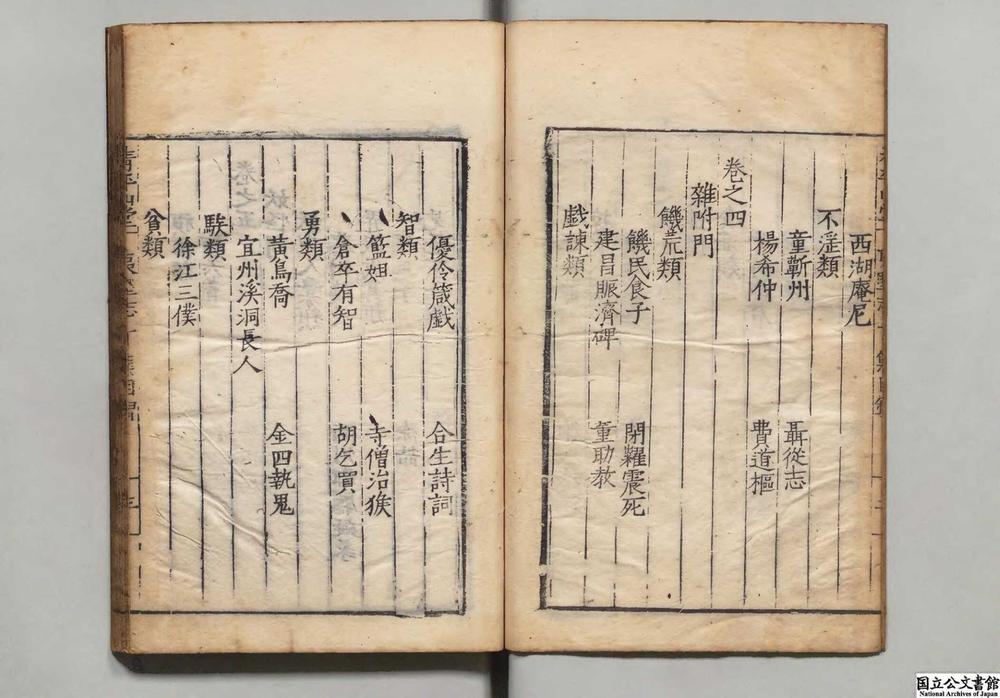 西湖庵尼
不淫類
童蘄州 聶從志
楊希仲 費道樞
卷之四
雜附門
饑荒類
饑民食子 閉糴震死
建昌賑濟碑 董助教
戲諫類
優伶箴戲 合生詩詞
智類
籃姐 寺僧治猴
倉卒有智 胡乞買
勇類
黃烏喬 金四執鬼
宜州溪洞長人
騃類
徐江三僕
貧類
国立公文書館
National Archives of Japan